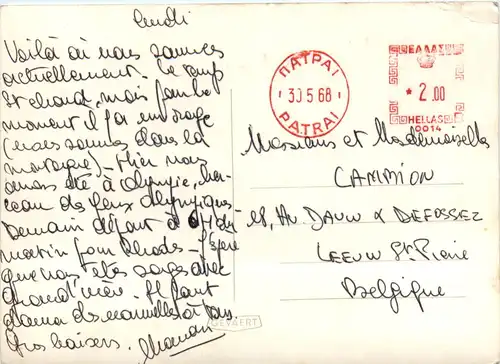 Lundi
Voilà où nous sommes
actuellement. Le temps
est chaud, mais pour le
moment il fait un orage
(nous sommes dans la
montagne) - Hier nous
avons été à Olympie, ber-
ceau des Jeux Olympiques
Demain départ à 6h du
matin pour Rhodes - J'espère
que vous êtes sages avec
Grand'mère. Il faut
donner des nouvelles à
Gros baisers. Maman
ΠΑΤΡΑΙ
30 5 68
PATRAI
ΕΛΛΑΣ
* 2.00
HELLAS
0014
Messieurs et Mesdemoiselles
CAMMION
Av
LEEUW St. Pierre
Belgique
GEVAERT